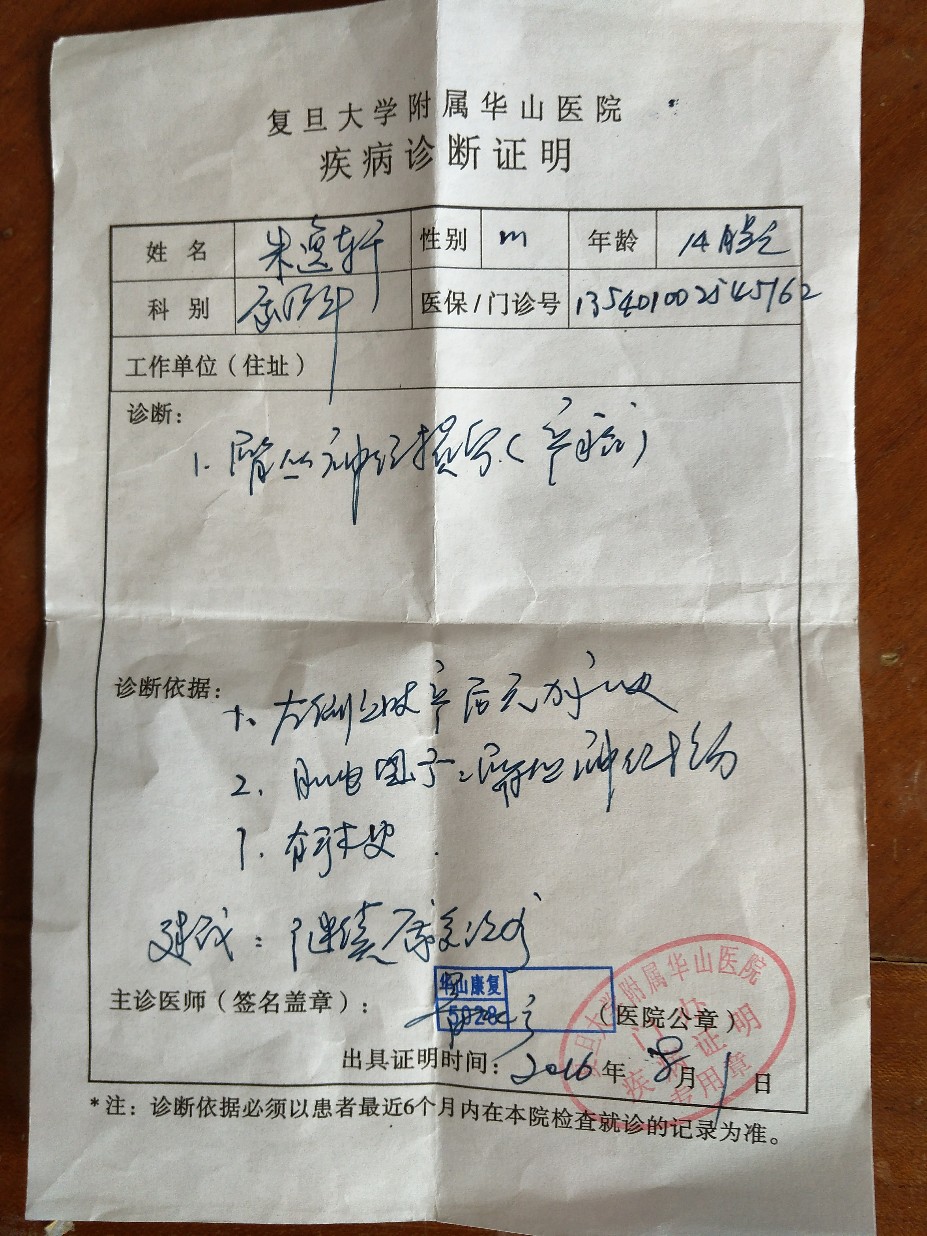 复旦大学附属华山医院
疾病诊断证明
姓名 朱逸轩 性别 m 年龄 14
科别 医保/门诊号 135401002545162
工作单位（住址）
诊断：
1. 臂丛神经损伤（产瘫）
诊断依据：
1. 左侧上肢产后无力
2. 肌电图示：臂丛神经损伤
有手术史
建议：继续康复治疗
主诊医师（签名盖章）：
华山康复
5028
（医院公章）
复旦大学附属华山医院
门办
疾病证明
专用章
出具证明时间：2016年8月1日
*注：诊断依据必须以患者最近6个月内在本院检查就诊的记录为准。